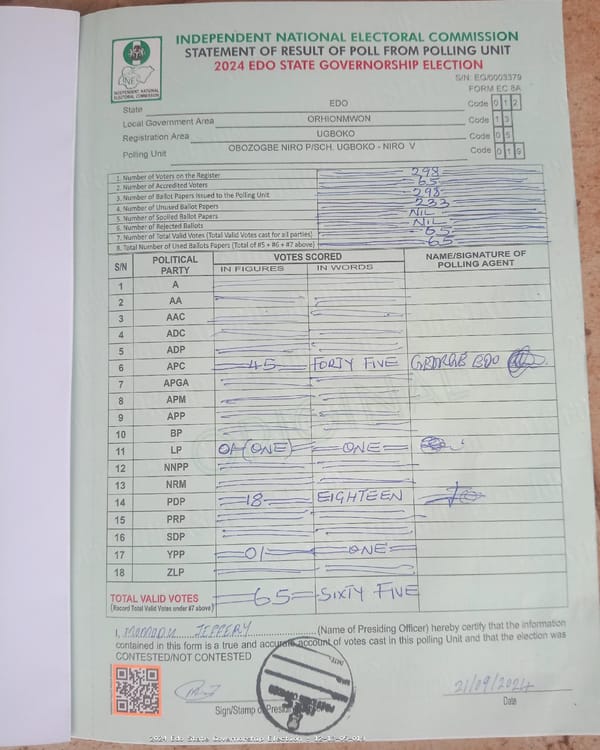 INDEPENDENT NATIONAL ELECTORAL COMMISSION
STATEMENT OF RESULT OF POLL FROM POLLING UNIT
2024 EDO STATE GOVERNORSHIP ELECTION
INDEPENDENT NATIONAL ELECTORAL COMMISSION
S/N: EG/0003379
FORM EC 8A
State EDO Code 0 1 2
Local Government Area ORHIONMWON Code 1 3
Registration Area UGBOKO Code 0 5
Polling Unit OBOZOGBE NIRO P/SCH. UGBOKO - NIRO V Code 0 1 9
1. Number of Voters on the Register 298
2. Number of Accredited Voters 65
3. Number of Ballot Papers Issued to the Polling Unit 298
4. Number of Unused Ballot Papers 233
5. Number of Spoiled Ballot Papers NIL
6. Number of Rejected Ballots NIL
7. Number of Total Valid Votes (Total Valid Votes cast for all parties) 65
8. Total Number of Used Ballots Papers (Total of #5 + #6 + #7 above) 65
S/N POLITICAL PARTY VOTES SCORED NAME/SIGNATURE OF POLLING AGENT
IN FIGURES IN WORDS
1 A
2 AA
3 AAC
4 ADC
5 ADP
6 APC 45 FORTY FIVE GEORGE EDO
7 APGA
8 APM
9 APP
10 BP
11 LP 01 (ONE) ONE
12 NNPP
13 NRM
14 PDP 18 EIGHTEEN
15 PRP
16 SDP
17 YPP 01 ONE
18 ZLP
TOTAL VALID VOTES 65 SIXTY FIVE
(Record Total Valid Votes under #7 above)
I, MOMODU JEFFERY (Name of Presiding Officer) hereby certify that the information
contained in this form is a true and accurate account of votes cast in this polling Unit and that the election was
CONTESTED/NOT CONTESTED
21/09/2024
Sign/Stamp of Presi
Date
2024 Edo State Governorship Election - 12-13-05-019